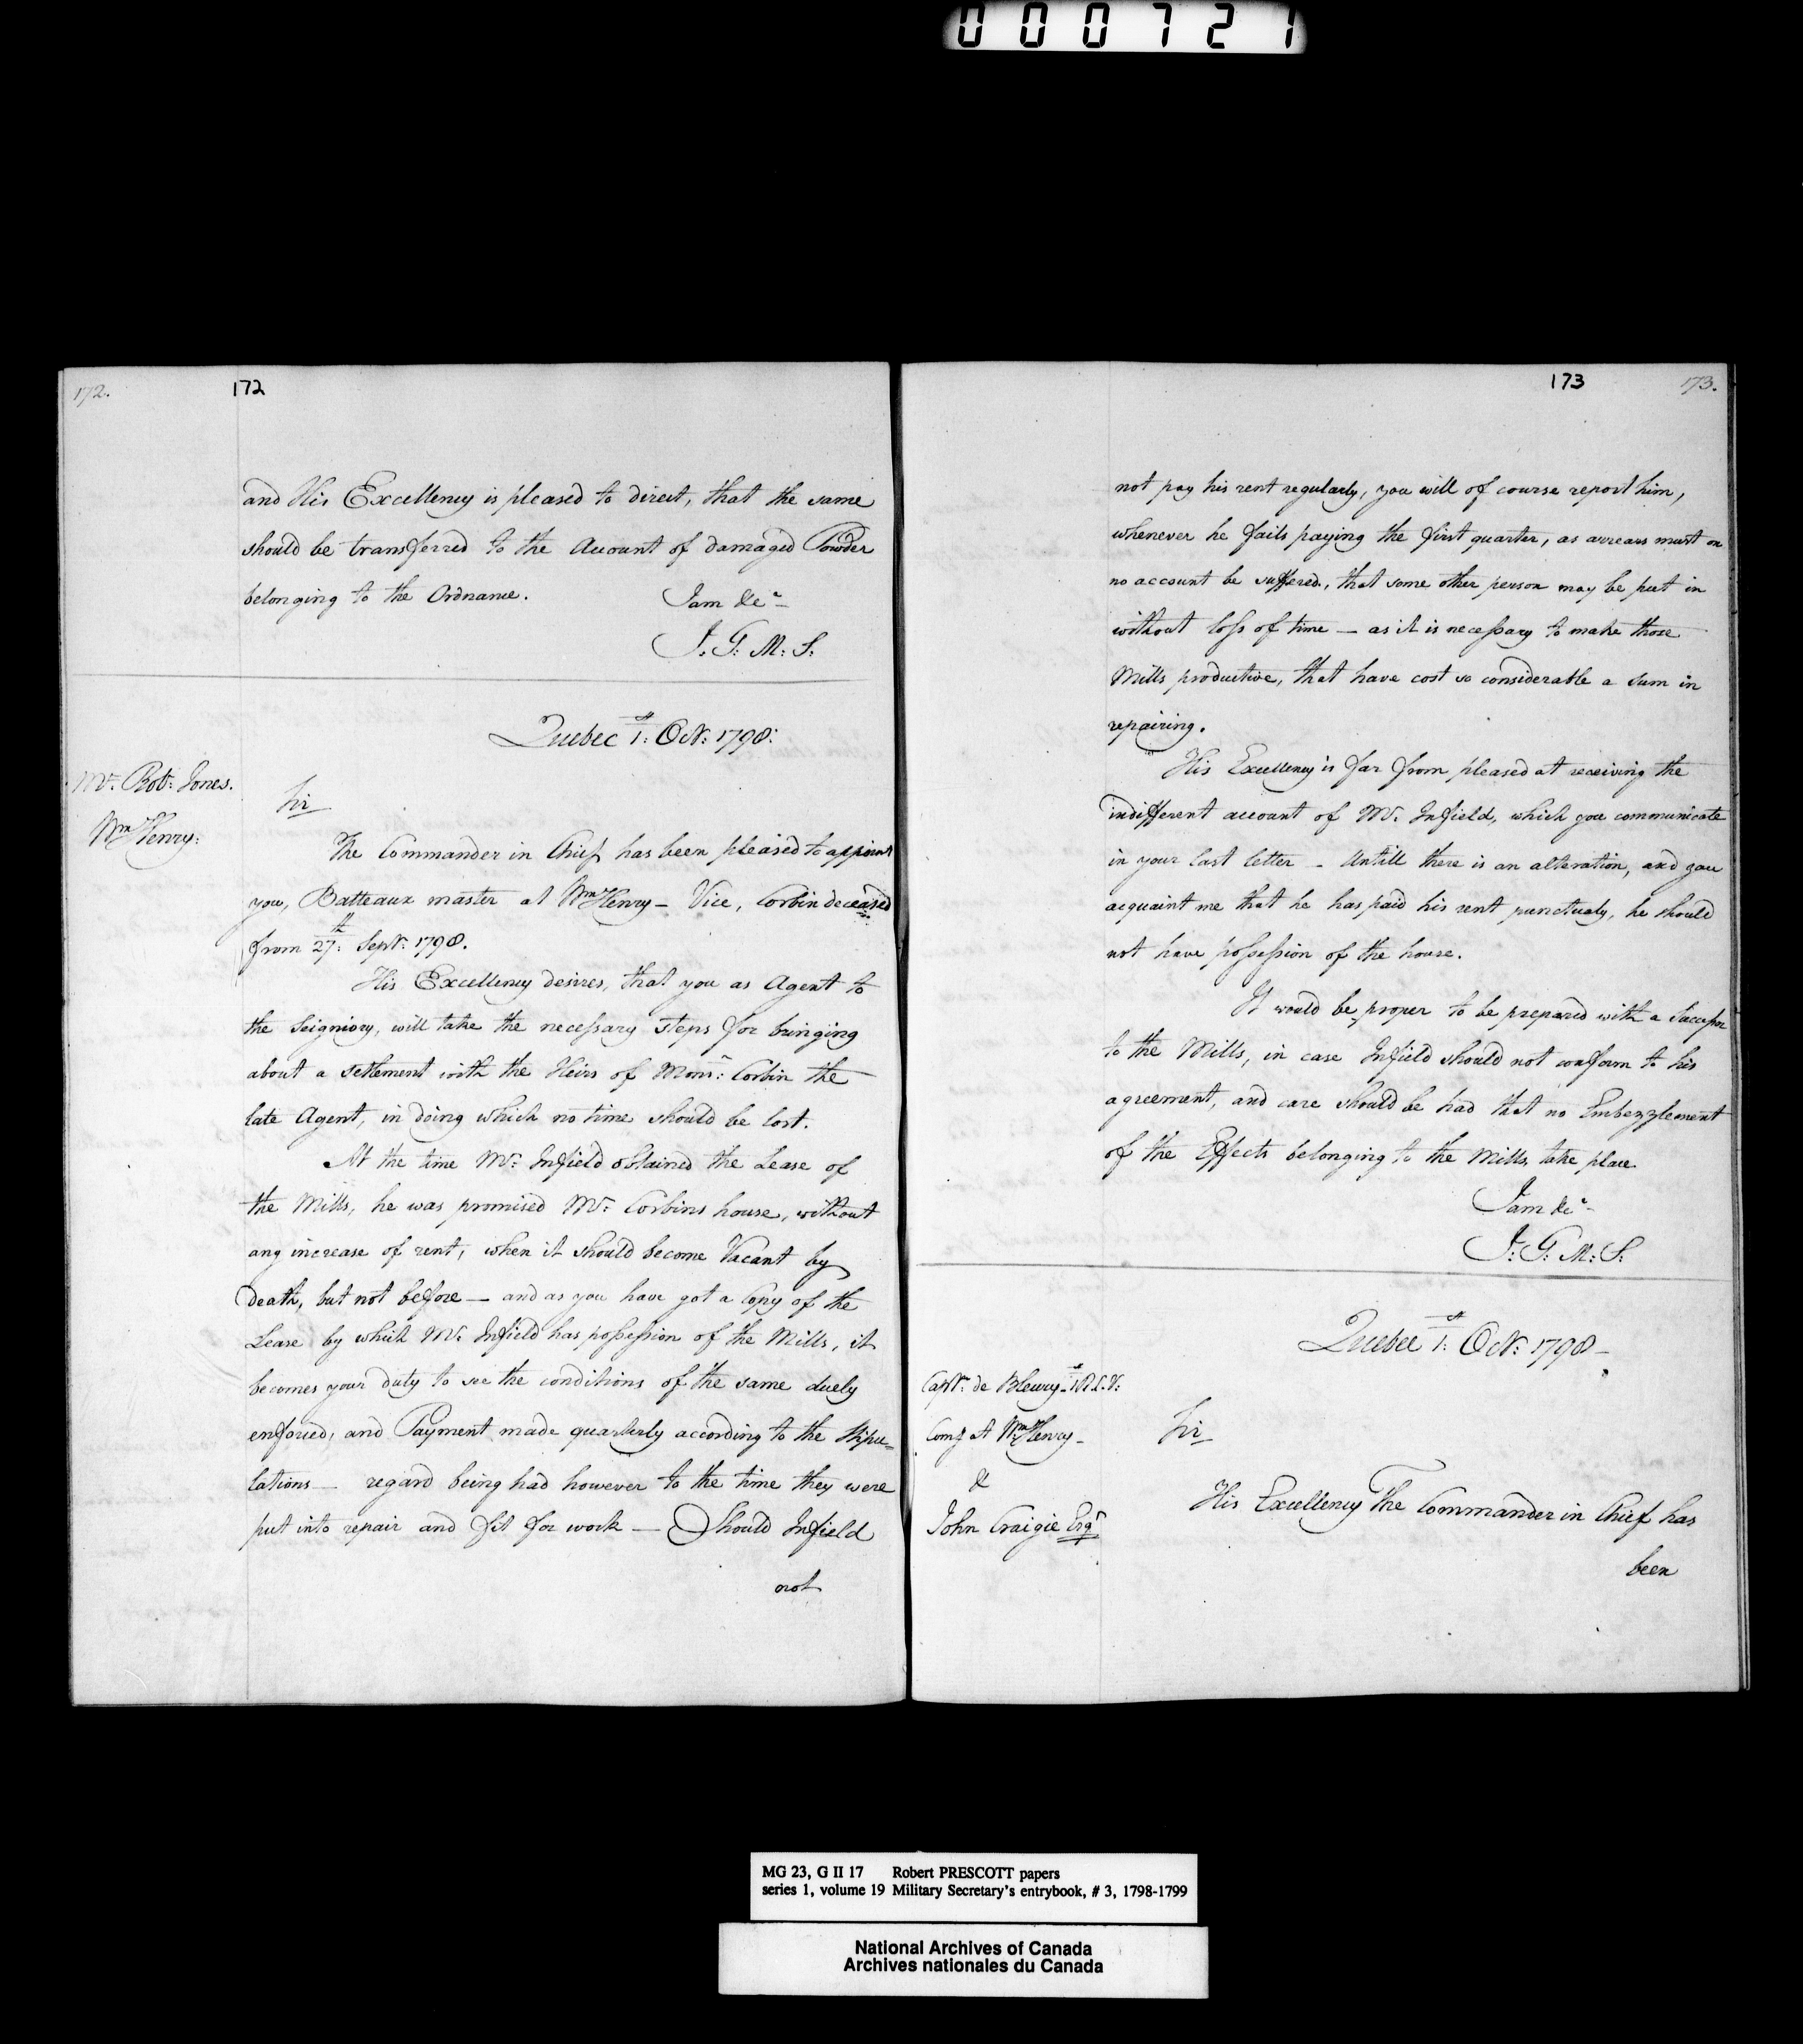 000721
172.
172
and His Excellency is pleased to direct, that the same
should be transferred to the Account of damaged Powder
belonging to the Ordnance.
I am &c.a
J. G. M. S.
Quebec 1.st Oct.r 1798.
Mr. Rob.t Jones.
Wm Henry.
Sir
The Commander in Chief has been pleased to appoint
you, Batteaux master at Wm Henry – Vice, Corbin deceased
from 27.th Sept.r 1798.
His Excellency desires, that you as Agent to
the Seigniory, will take the necessary steps for bringing
about a settlement with the Heirs of Monr. Corbin the
late Agent, in doing which no time should be lost.
At the time Mr. Infield obtained the Lease of
the Mills, he was promised Mr. Corbins house, without
any increase of rent, when it should become Vacant by
Death, but not before – and as you have got a Copy of the
Lease by which Mr. Infield has possession of the Mills, it
becomes your duty to see the conditions of the same duely
enforced, and Payment made quarterly according to the stipu=
lations – regard being had however to the time they were
put into repair and fit for work – Should Infield
not
173
173.
not pay his rent regularly, you will of course report him,
whenever he fails paying the first quarter, as arrears must on
no account be suffered, that some other person may be put in
without loss of time – as it is necessary to make those
Mills productive, that have cost so considerable a sum in
repairing.
His Excellency is far from pleased at receiving the
indifferent account of Mr. Infield, which you communicate
in your last letter – Untill there is an alteration, and you
acquaint me that he has paid his rent punctualy, he should
not have possession of the house.
It would be proper to be prepared with a Successor
to the Mills, in case Infield should not conform to his
agreement, and care should be had that no Embezzlement
of the Effects belonging to the Mills take place.
I am &c.a
J. G. M. S.
Quebec 1.st Oct.r 1798 –
Capt.n de Bleury – R.C.V.
Comg at Wm Henry –
&
John Craigie Esqr
Sir
His Excellency The Commander in Chief has
been
MG 23, G II 17 Robert PRESCOTT papers
series 1, volume 19 Military Secretary's entrybook, # 3, 1798-1799
National Archives of Canada
Archives nationales du Canada